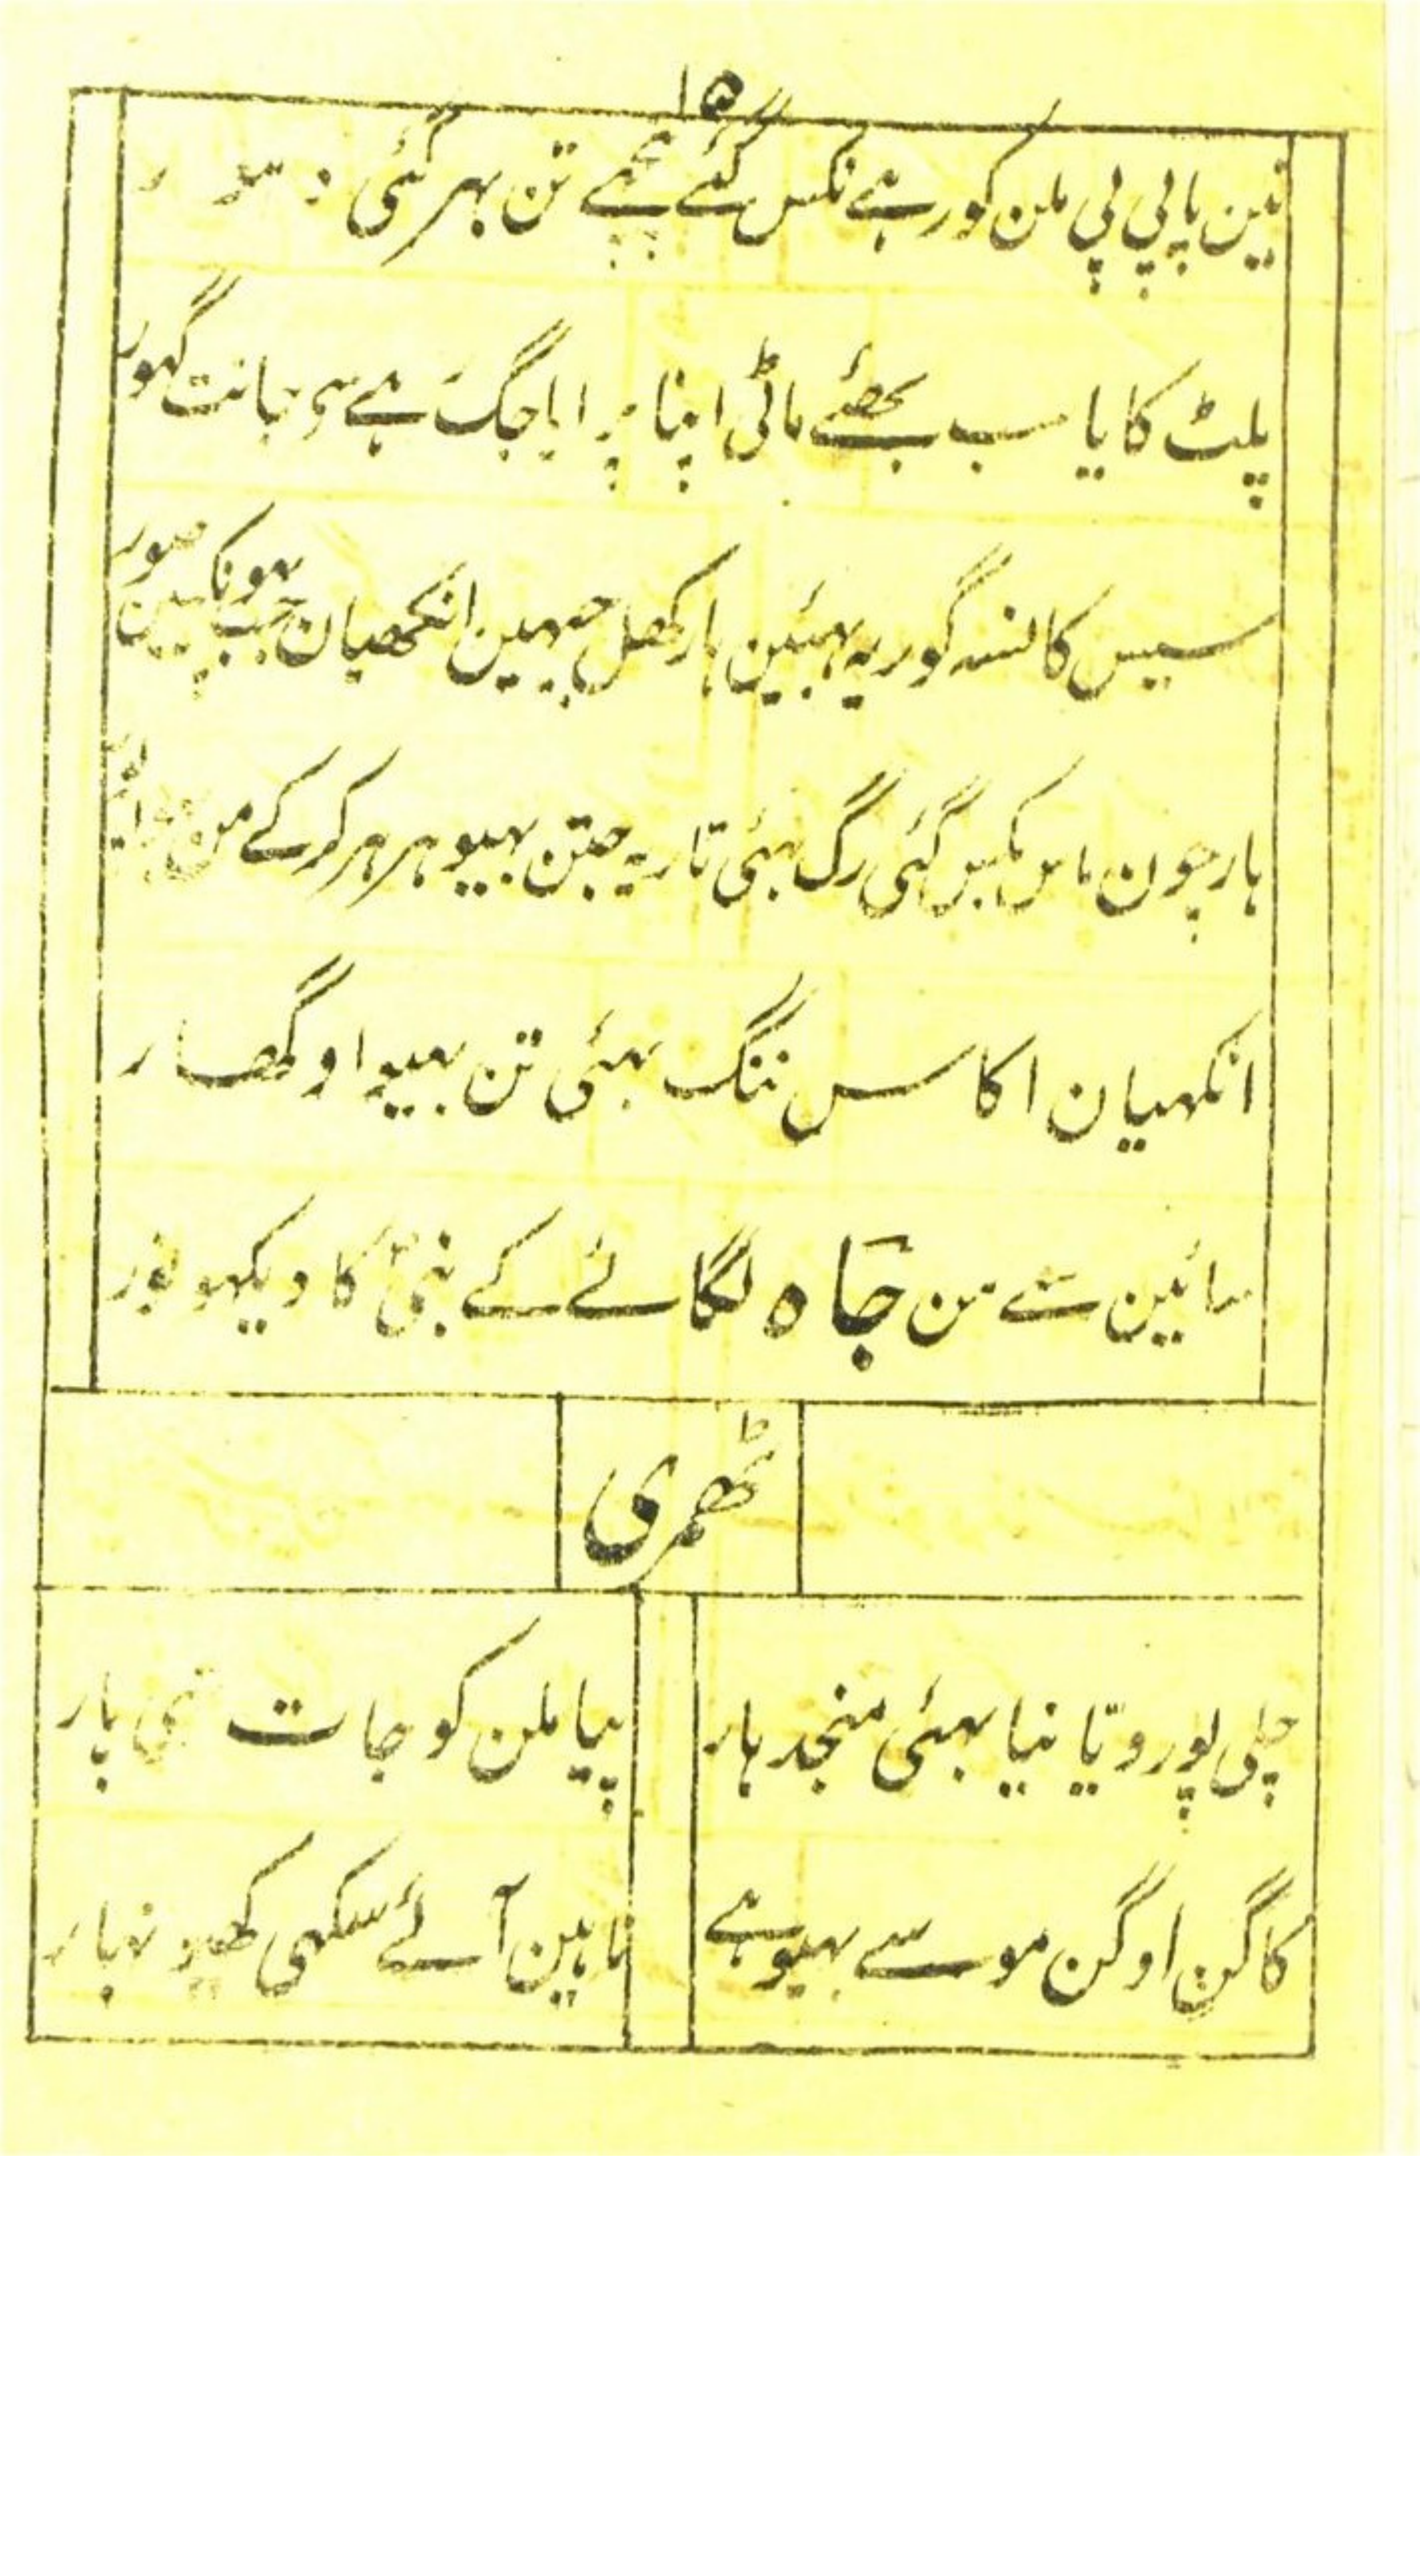 ۱۵
نین پاپی پی ملن کو رہے نکس گئے تن بہر گئی
پلٹ کایا سب بھئے ماٹی اپنا پرایا جگ ہے جانت گہور
سیس کانسہ گور یہ بہئین ہار کھل انکھیان جب پہونکین صور
ہار چون ماس بکس گئی رگ بہئی تار یہ جتن بہیو ہر ہر کر کے من
انکہیان اکاسس ننگ بہئی تن بہیو اوگھار
سائین سے من جَاہ لگائے کے نبی کا دیکہو نور
ٹھمری
چلی پورویّا نیا بہئی منجدہار
پیا ملن کو جات پار
کاگن اوگن موسے بہیو ہے
ناہین آئے سکہی نہار